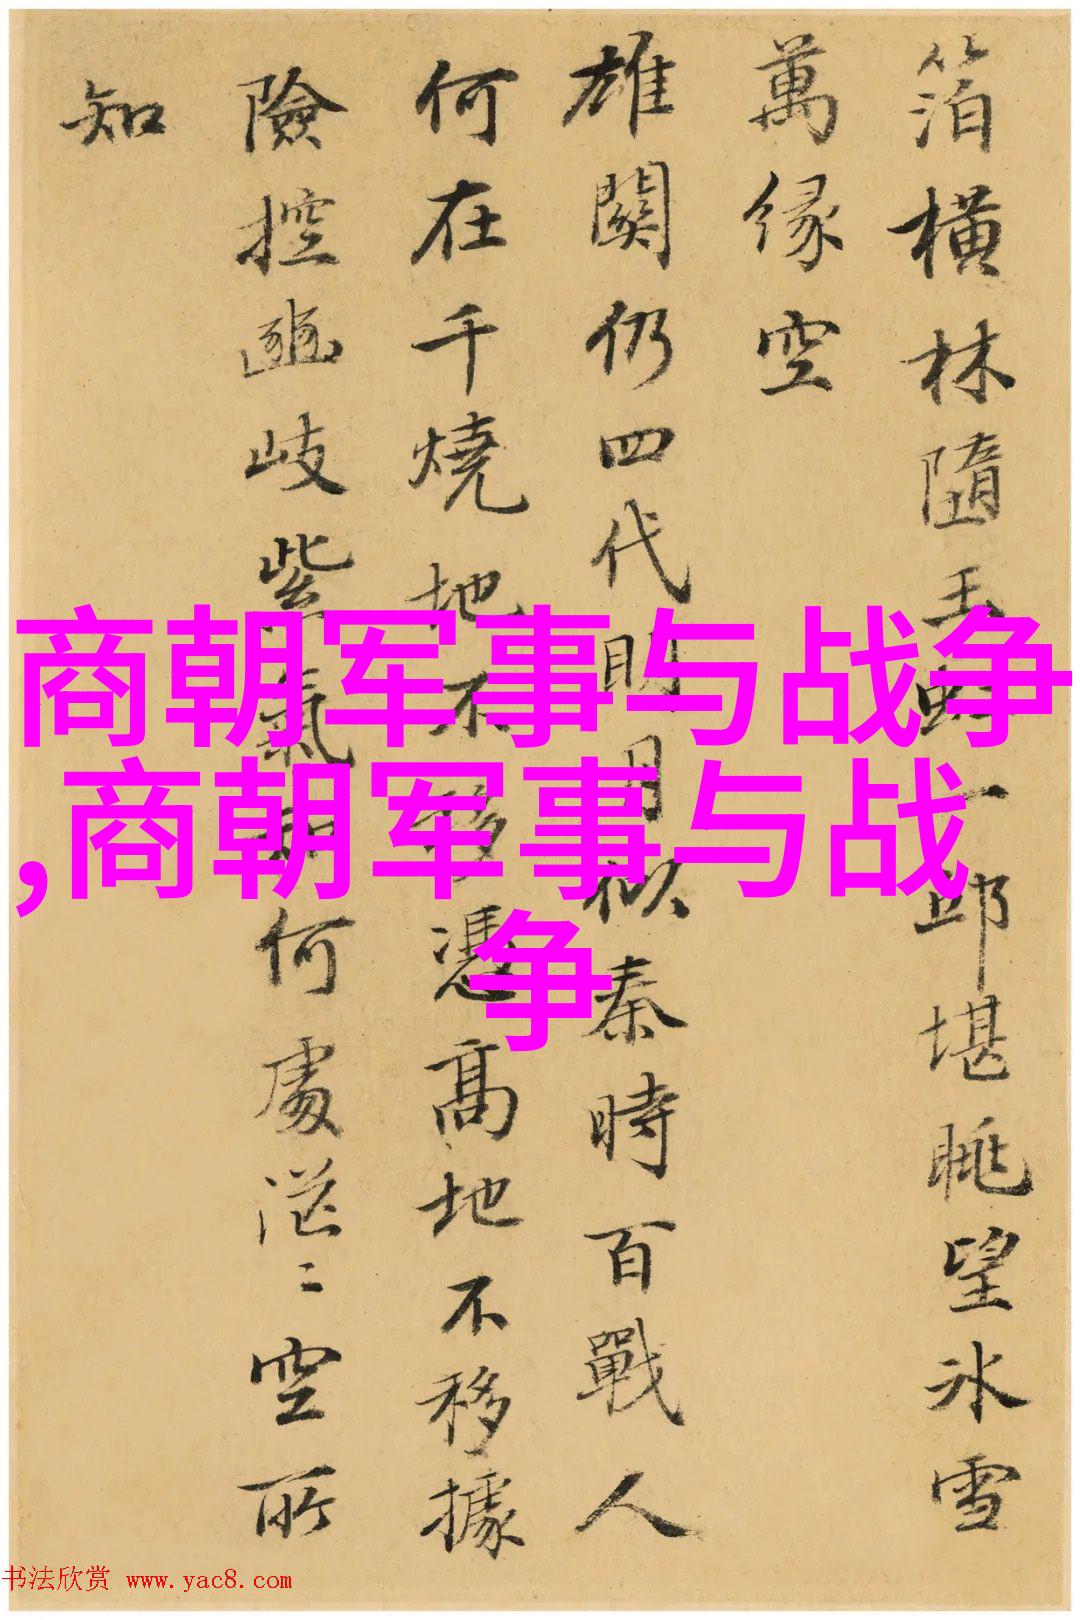 箔橫林隨玉虹一邱堪眺望冰雪
萬緣空
雄關仍四代明月似秦時百戰人
何在千燒地不移憑高地不移據
險控豳岐紫氣何處茫〻空所
知
商朝军事与战争
,商朝军事与战
争
书法欣赏 www.yac8.com